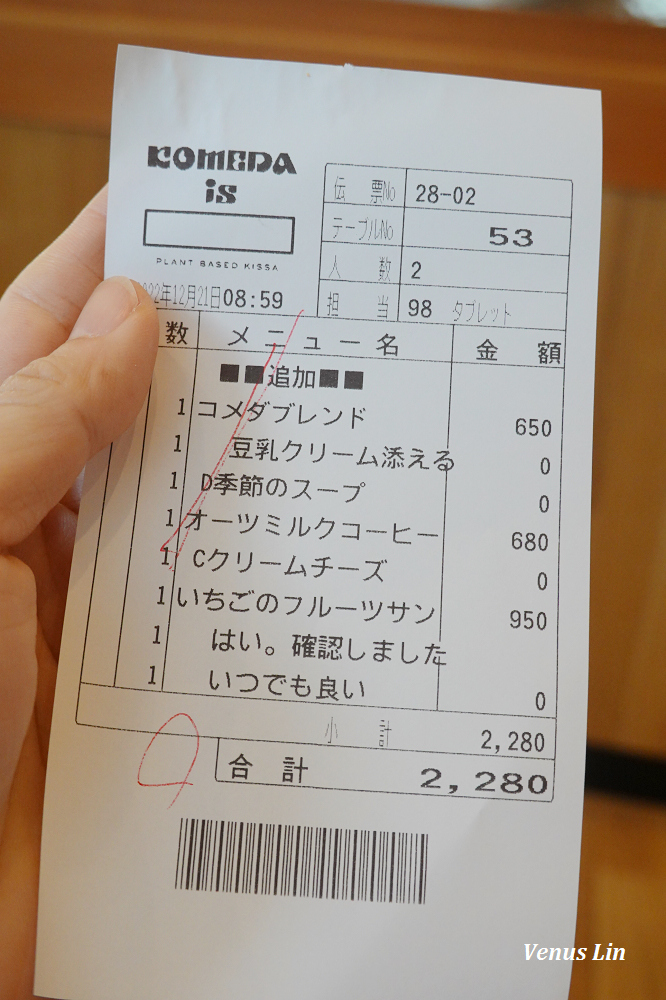 KOMEDA
is
PLANT BASED KISSA
伝 票No 28-02
テーブルNo 53
人 数 2
担 当 98 タブレット
22年12月21日08:59
数 メニュー名 金 額
■■追加■■
1 コメダブレンド 650
1 豆乳クリーム添える 0
1 D季節のスープ 0
1 オーツミルクコーヒー 680
1 Cクリームチーズ 0
1 いちごのフルーツサン 950
1 はい。確認しました
1 いつでも良い 0
小 計 2,280
合 計 2,280
Venus Lin